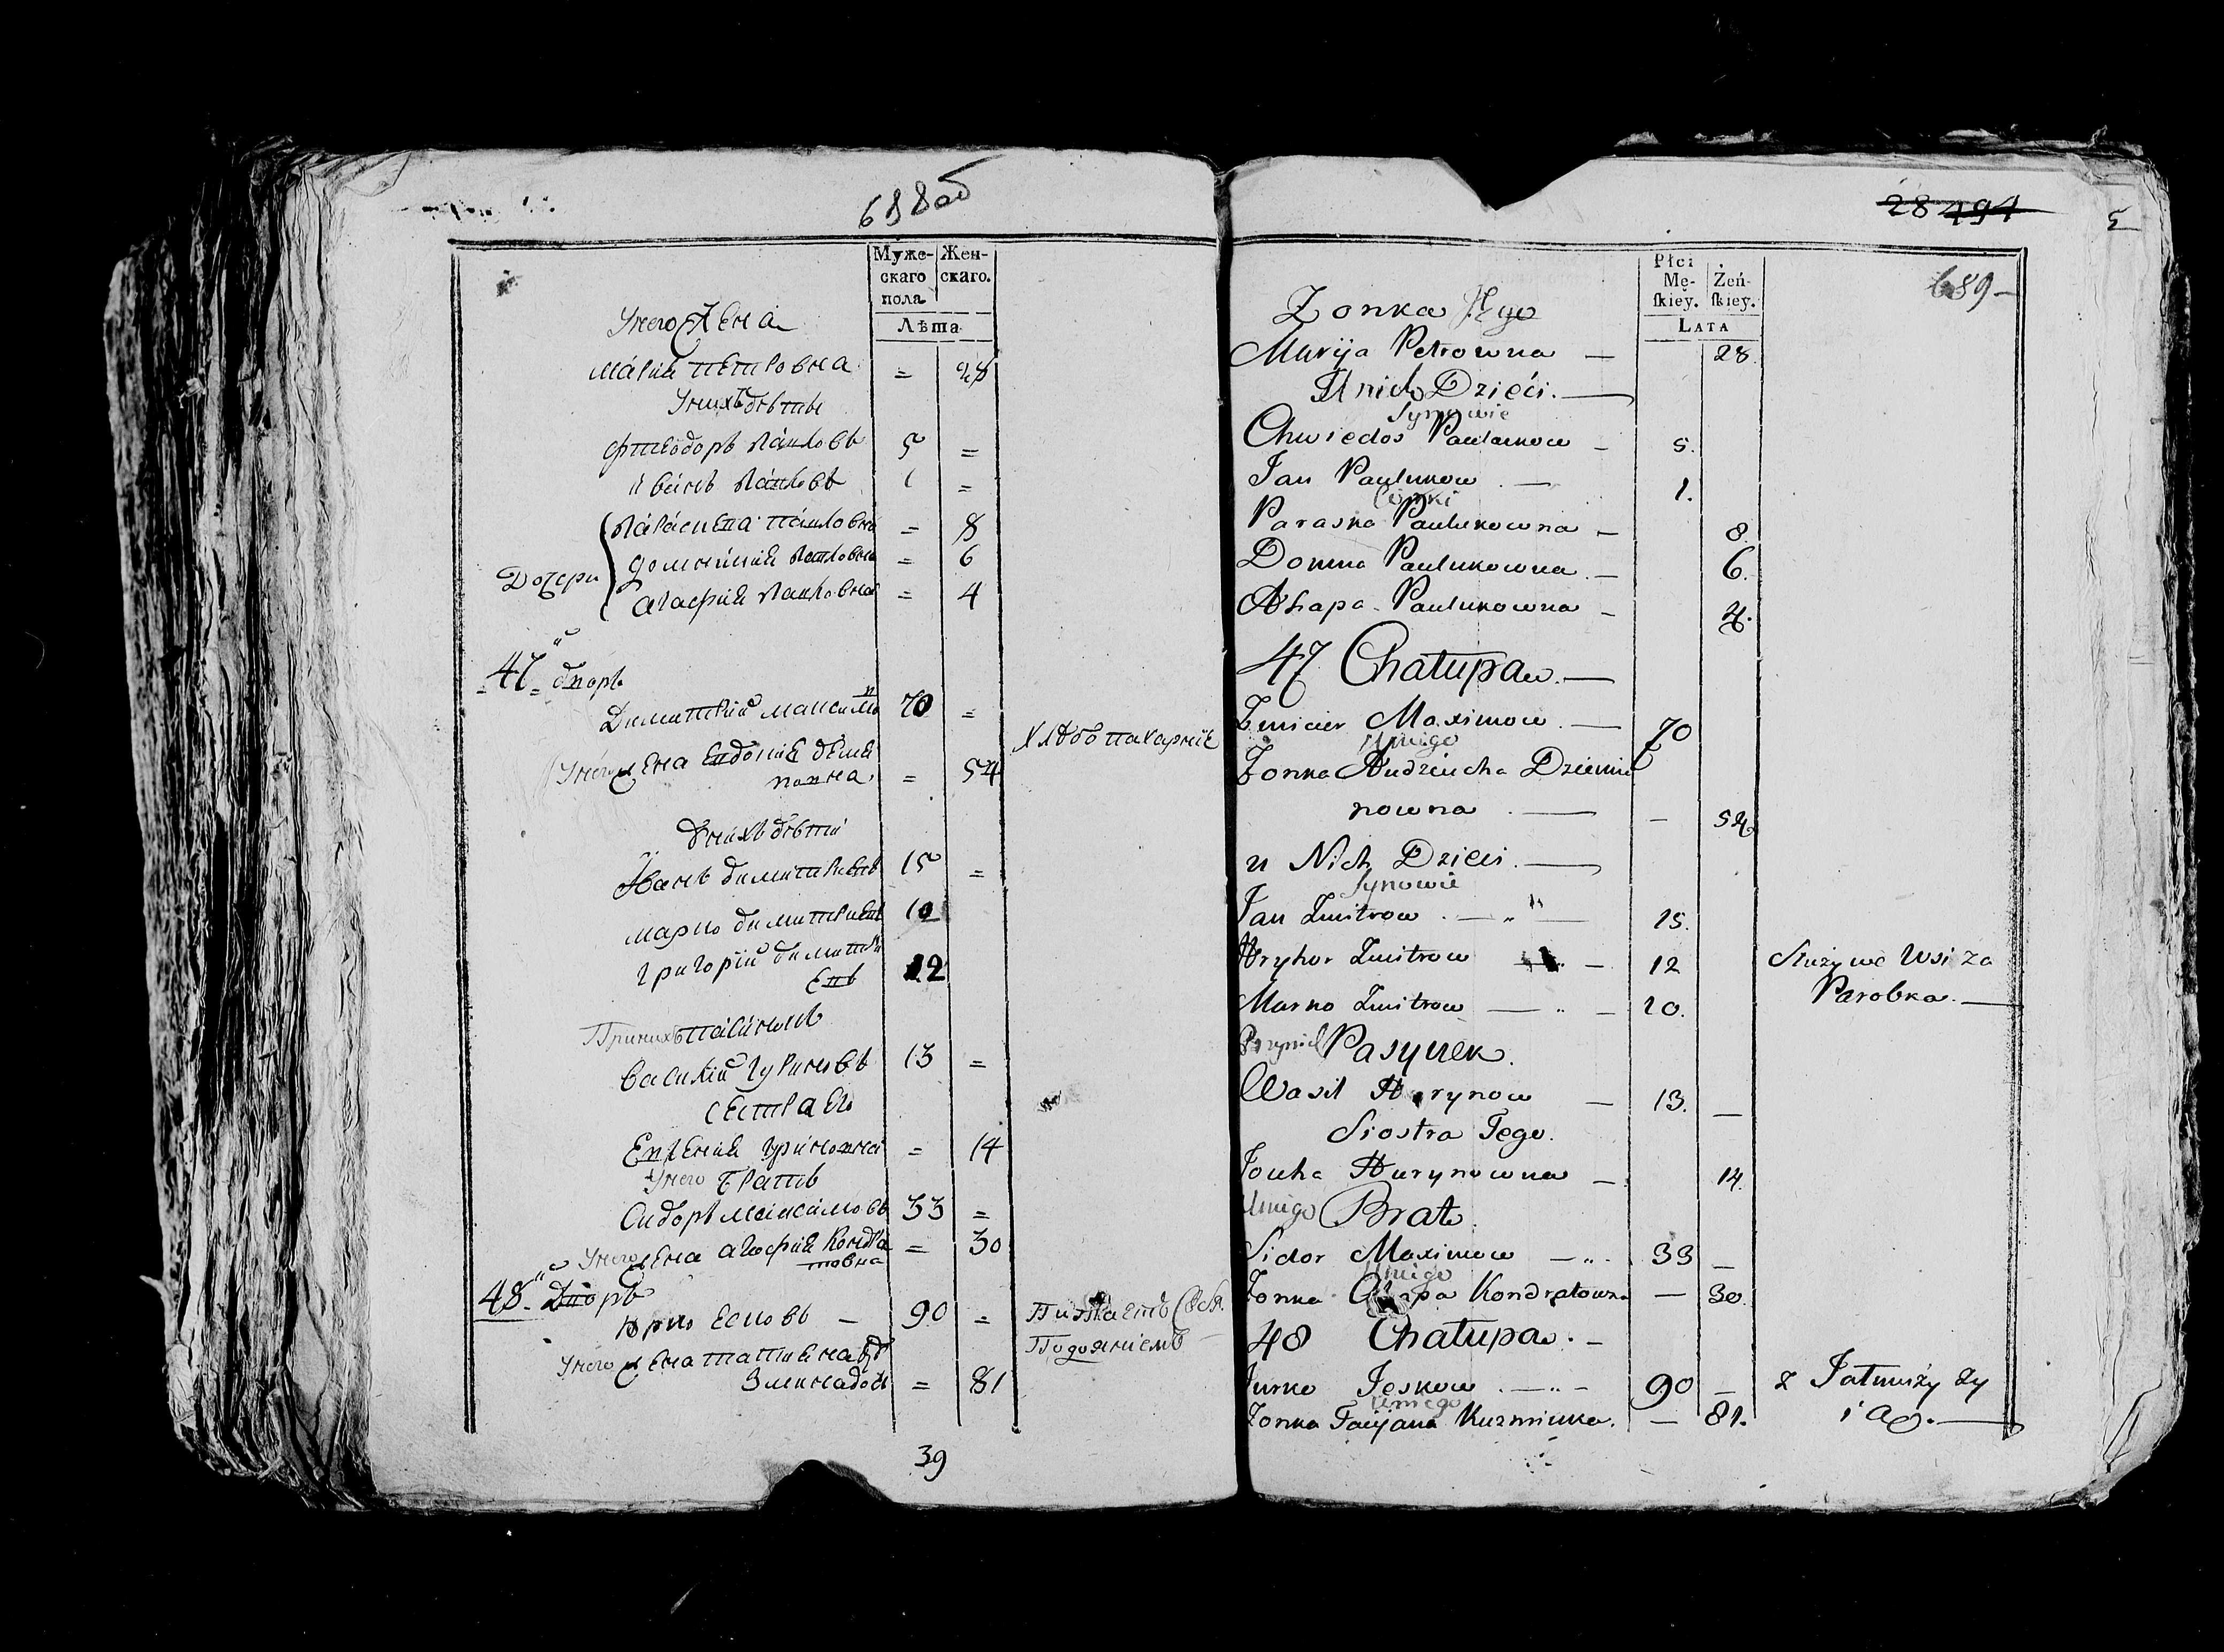 688 об
Муже-
скаго
пола
Жен-
скаго.
Лѣта
У него жена
Мария Петровна = 28
У нихъ дѣти
Фтеодоръ Павловъ 5 =
Иванъ Павловъ 1 =
Дочери
Параскева Павловна = 8
Домникия Павловна = 6
Агафия Павловна = 4
47 дворъ
Димитрий Максимо
въ 70 =
Хлѣбопахарные
У него жена Евдокия Деме
новна = 54
У нихъ дѣти
Иванъ Димитриевъ 15 =
Марко Димитриевъ 10
Григорий Димитри
евъ 12
При нихъ пасинокъ
Василий Гуриновъ 13 =
Сестра его
Евгения Гуриновна = 14
У него братъ
Сидоръ Максимовъ 33 =
У него жена Агафия Кондра
товна = 30
48 Дворъ
Юрко Есковъ — 90 =
Питаетъ Себя
Подояниемъ
У него жена Татиена
= 81
39
28 494
5
689
Płci
Mę-
skiey.
Żeń-
skiey.
LATA
Zonka Jego
Maryja Petrowna — 28
U nich Dzieći. —
Synowie
Chwiedos Paulukow — 5.
Jan Paulukow . — 1.
Córki
Paraska Paulukowna — 8.
Domna Paulukowna . — 6.
Ahapa Paulukowna — 4.
47 Chatupa . —
Zmicier Maximow . — 70
U niego
Zonka Audziucha Dziemia
nowna . — — 54
u Nich Dzieci . —
Synowie
Jan Zmitrow . — „ — 15.
Hryhor Zmitrow — 12
Służy we wsi za
Parobka. —
Marko Zmitrow — „ — 10.
Przy nich Pasynek.
Wasil Hurynow — 13. —
Siostra Tego.
Jouha Hurynowna — 14.
U niego Brat
Sidor Maximow — „ . 33 —
U niego
Zonka Ahapa Kondratowna — 30.
48 Chatupa . —
Jurko Jeskow . — „ — 90 —
z Jałmużny ży
U niego
Zonka Tacijana Kuzminka. — 81.